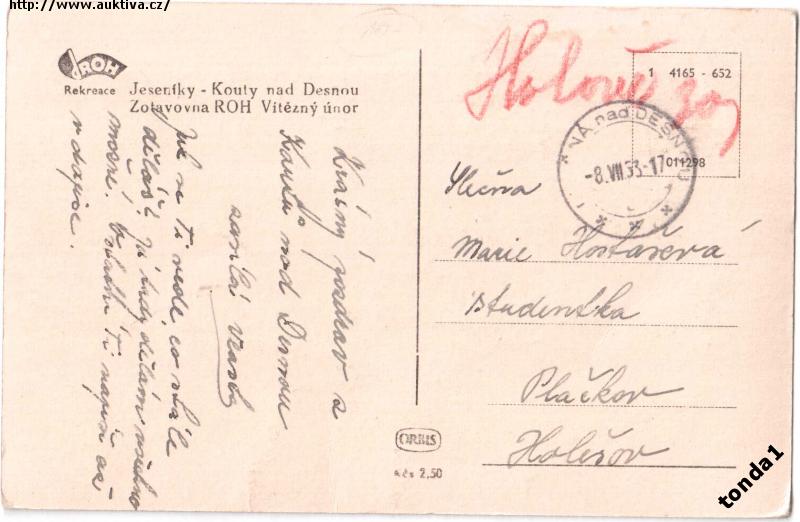 http://www.auktiva.cz/
ROH
Rekreace
Jeseníky - Kouty nad Desnou
Zotavovna ROH Vítězný únor
Krásný pozdrav z
Koutů nad Desnou
zasílá
Jak se Ti vede, co stále
děláš? Já tady dělám všechno
možné. Ti napíši až
v dopise.
1 4165 - 652
011298
NÁ nad DESNOU
-8.VII.53-17
Slečna
Marie Hostašová
Studentka
Plačkov
Holešov
ORBIS
Kčs 2,50
tonda1